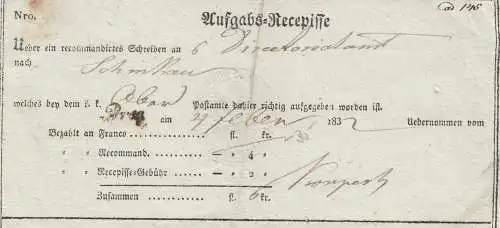 ad 145
Nro. Aufgabs-Recepisse
Ueber ein recommandirtes Schreiben an 6 Directorialamt
nach Schinkau
welches bey dem k. k. Ober Postamte dahier richtig aufgegeben worden ist.
Prag am 4 Feber 1832 Uebernommen vom
Bezahlt an Franco . . . . . . . . . . . . fl. kr.
" " Recommand. . . . . . . . . . — " 4 "
" " Recepisse-Gebühr . . . . — " 2 "
Zusammen . . . . . . . . . fl. 6 kr.